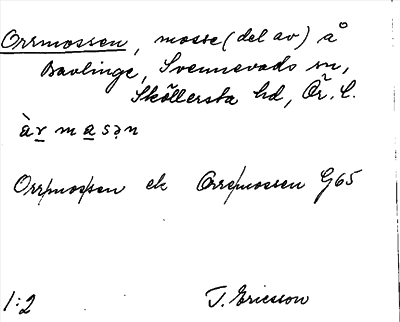 Orrmossen, mosse (del av) å
Bavlinge, Svennevads sn,
Sköllersta hd, Ör. l.
àr mas̱ən
Orr/mos/sen ek Orre/mossen G65
1:2 T. Ericsson